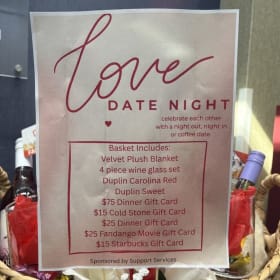 love
DATE NIGHT
celebrate each other
with a night out, night in
or coffee date
Basket Includes:
Velvet Plush Blanket
4 piece wine glass set
Duplin Carolina Red
Duplin Sweet
$75 Dinner Gift Card
$15 Cold Stone Gift Card
$25 Dinner Gift Card
$25 Fandango Movie Gift Card
$15 Starbucks Gift Card
Sponsored by Support Services